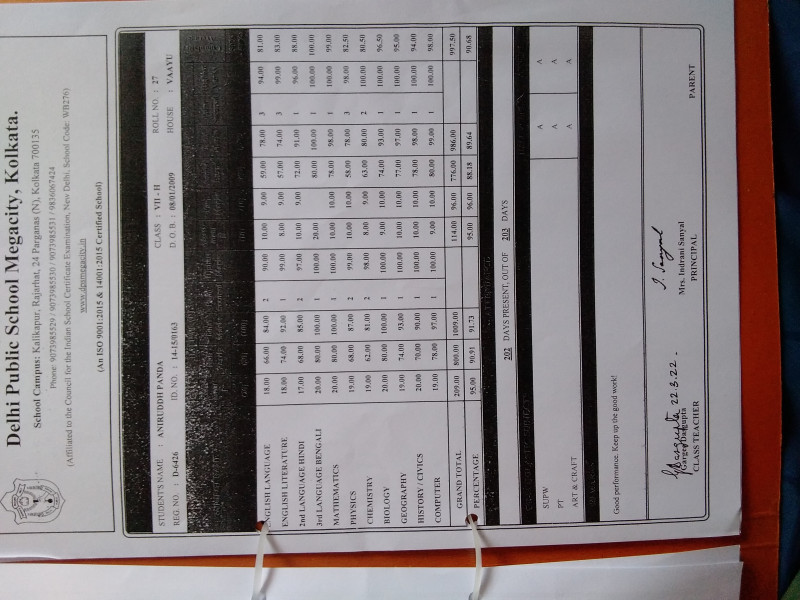 Delhi Public School Megacity, Kolkata.
School Campus: Kalikapur, Rajarhat, 24 Parganas (N), Kolkata 700135
Phone: 9073985529 / 9073985530 / 9073985531 / 9836067424
(Affiliated to the Council for the Indian School Certificate Examination, New Delhi, School Code: WB276)
www.dpsmegacity.in
(An ISO 9001:2015 & 14001:2015 Certified School)
STUDENT'S NAME : ANIRUDDH PANDA CLASS : VII - H ROLL NO. : 27
REG. NO. : D-6426 ID. NO. : 14-15/0163 D. O. B. : 08/01/2009 HOUSE : VAAYU
ENGLISH LANGUAGE 18.00 66.00 84.00 2 90.00 10.00 9.00 59.00 78.00 3 94.00 81.00
ENGLISH LITERATURE 18.00 74.00 92.00 1 99.00 8.00 9.00 57.00 74.00 3 99.00 83.00
2nd LANGUAGE HINDI 17.00 68.00 85.00 2 97.00 10.00 9.00 72.00 91.00 1 96.00 88.00
3rd LANGUAGE BENGALI 20.00 80.00 100.00 1 100.00 20.00 80.00 100.00 1 100.00 100.00
MATHEMATICS 20.00 80.00 100.00 1 100.00 10.00 10.00 78.00 98.00 1 100.00 99.00
PHYSICS 19.00 68.00 87.00 2 99.00 10.00 10.00 58.00 78.00 3 98.00 82.50
CHEMISTRY 19.00 62.00 81.00 2 98.00 8.00 9.00 63.00 80.00 2 100.00 80.50
BIOLOGY 20.00 80.00 100.00 1 100.00 9.00 10.00 74.00 93.00 1 100.00 96.50
GEOGRAPHY 19.00 74.00 93.00 1 100.00 10.00 10.00 77.00 97.00 1 100.00 95.00
HISTORY / CIVICS 20.00 70.00 90.00 1 100.00 10.00 10.00 78.00 98.00 1 100.00 94.00
COMPUTER 19.00 78.00 97.00 1 100.00 9.00 10.00 80.00 99.00 1 100.00 98.00
GRAND TOTAL 209.00 800.00 1009.00 114.00 96.00 776.00 986.00 997.50
PERCENTAGE 95.00 90.91 91.73 95.00 96.00 88.18 89.64 90.68
202 DAYS PRESENT, OUT OF 203 DAYS
SUPW A A
PT A A
ART & CRAFT A A
Good performance. Keep up the good work!
22.3.22.
I. Sanyal
Gargee Dasgupta Mrs. Indrani Sanyal
CLASS TEACHER PRINCIPAL PARENT